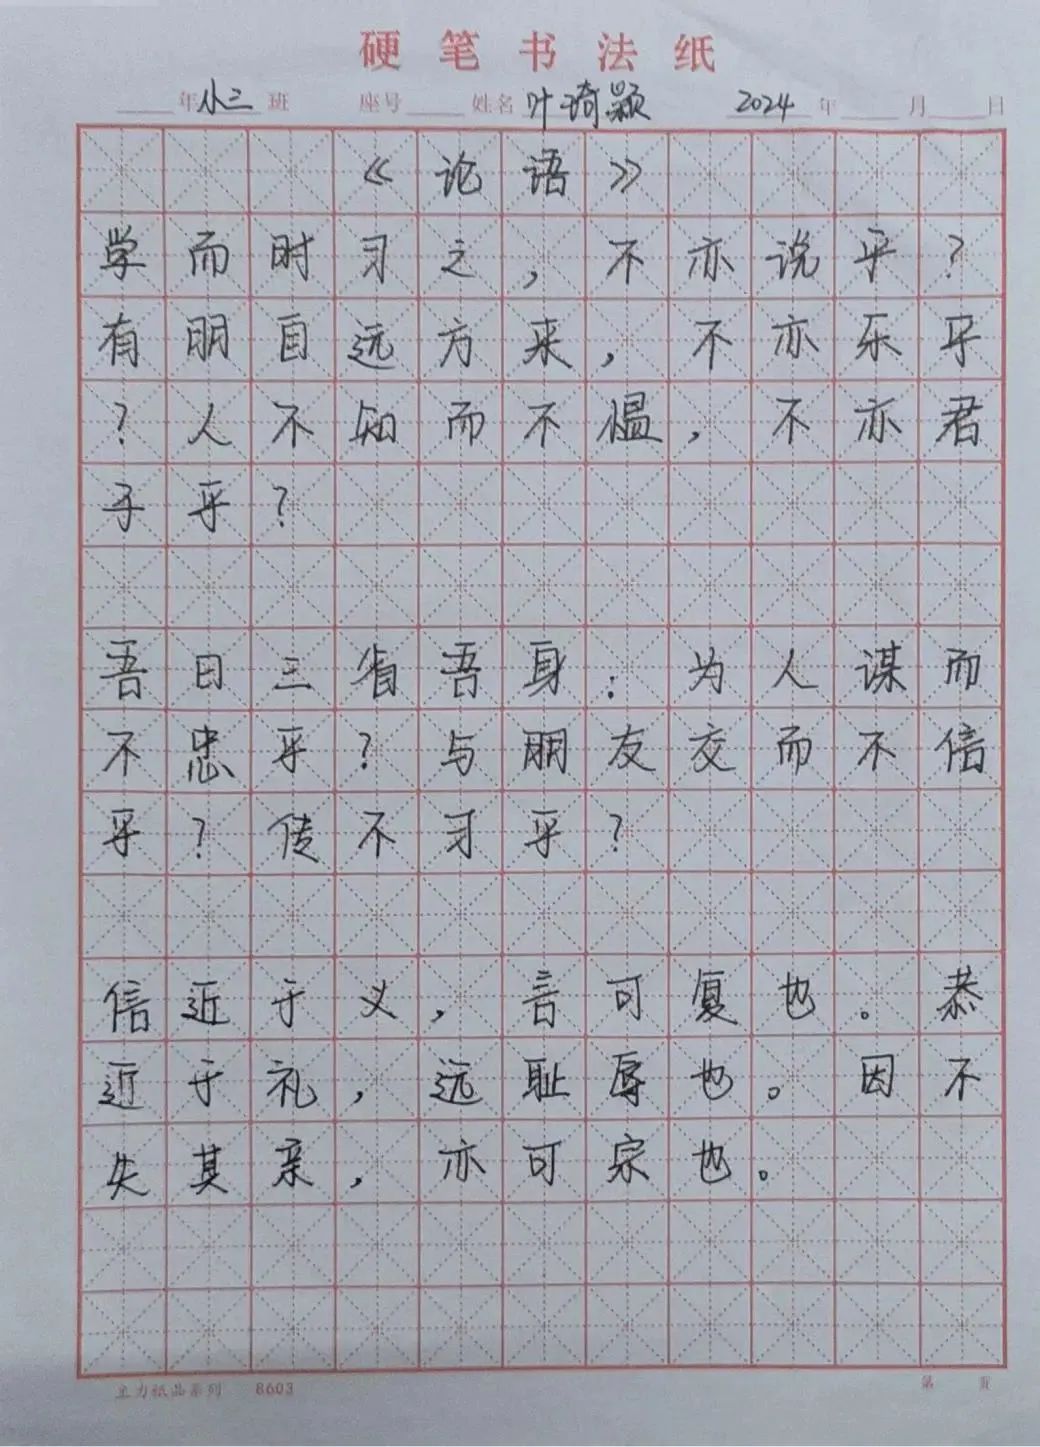 硬笔书法纸
年 小三 班 座号 姓名 叶琦颖 2024 年 月 日
《论语》
学而时习之，不亦说乎？
有朋自远方来，不亦乐乎
？人不知而不愠，不亦君
子乎？
吾日三省吾身：为人谋而
不忠乎？与朋友交而不信
乎？传不习乎？
信近于义，言可复也。恭
近于礼，远耻辱也。因不
失其亲，亦可宗也。
立力纸品系列 8603 第 页